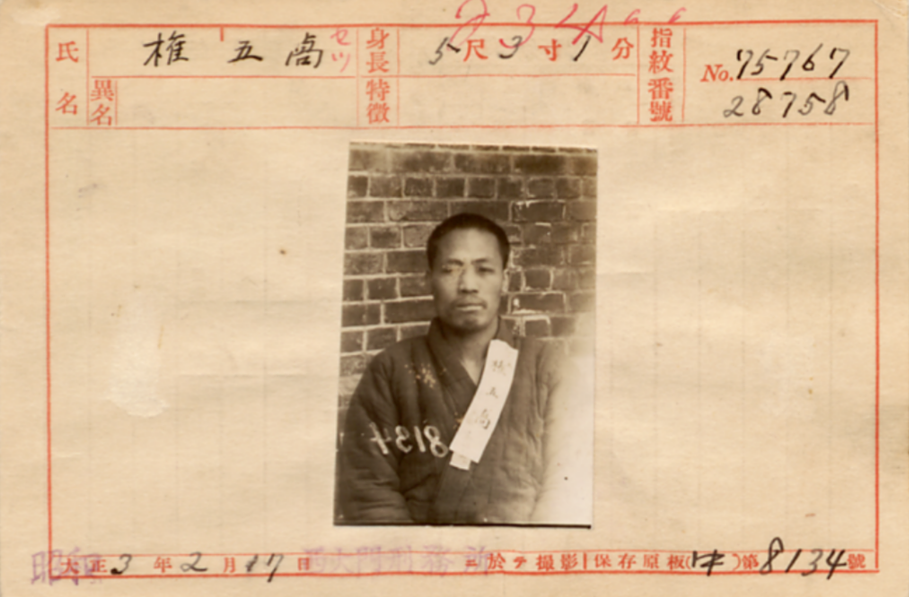 氏名 権五卨 セツ 身長 5尺3寸1分 指紋番號 No.75767
異名 特徴 28758
五卨
8134
昭和 大正3年2月17日 西大門刑務所 ニ於テ撮影 保存原板(中)第8134號